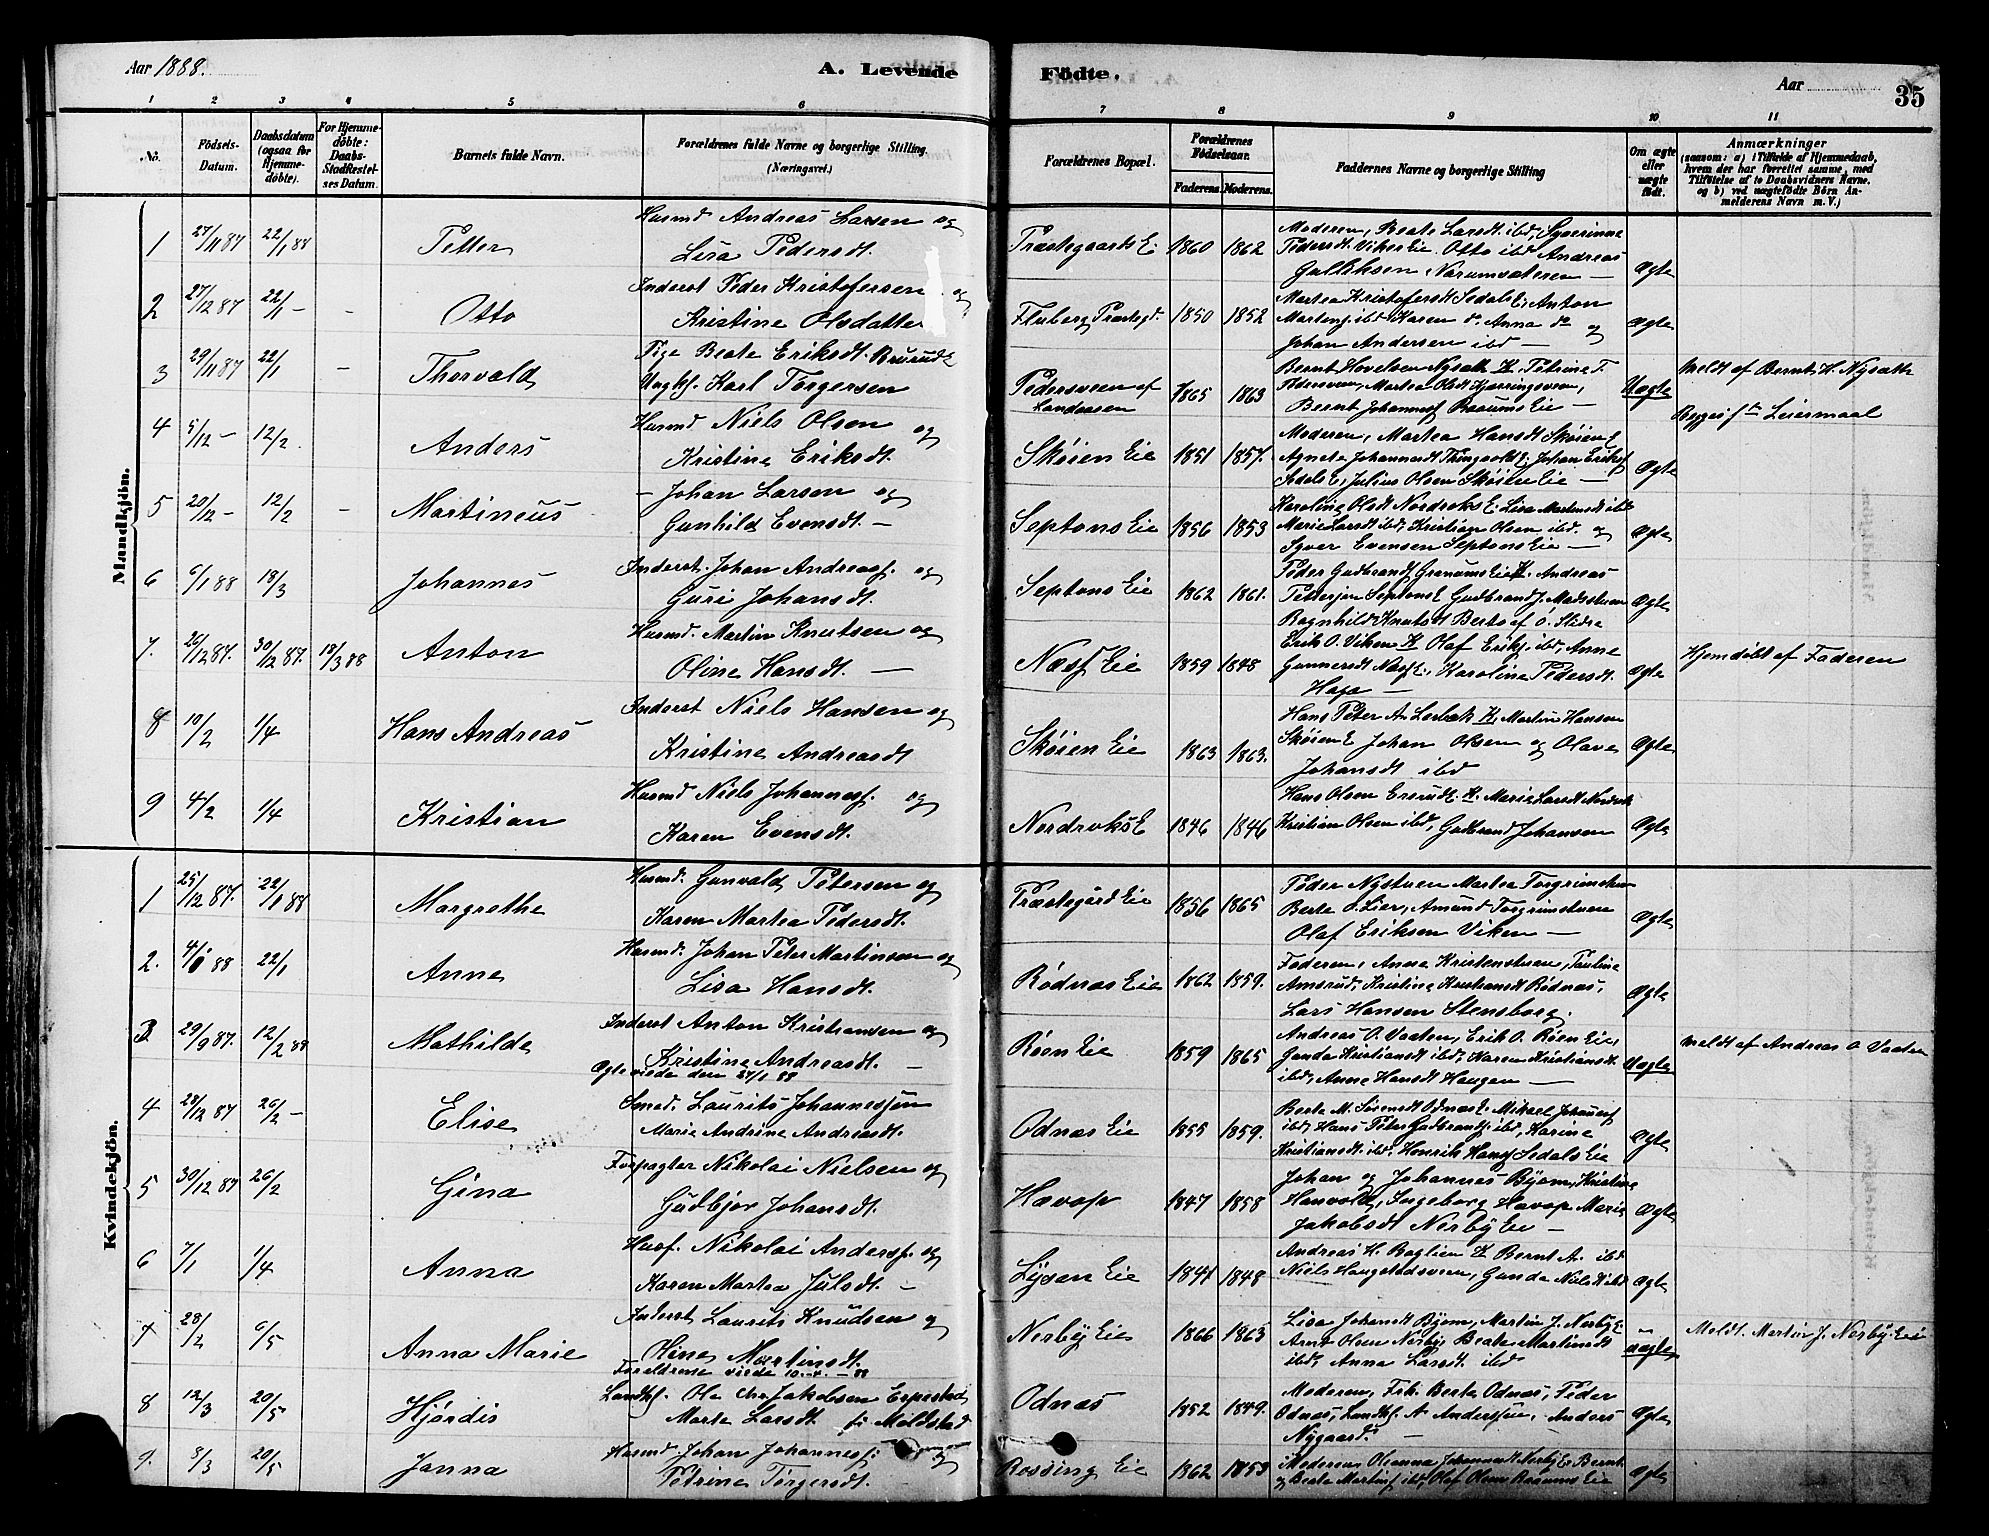 Aar 1888.
A. Levende Födte.
Aar
35
1 2 3 4 5 6 7 8 9 10 11
No.
Födsels-Datum.
Daabsdatum (ogsaa for Hjemme-döbte).
For Hjemme-döbte: Daabs-Stadfæstel-ses Datum.
Barnets fulde Navn.
Forældrenes fulde Navne og borgerlige Stilling. (Næringsvei.)
Forældrenes Bopæl.
Forældrenes Födselsaar.
Faderens. Moderens.
Faddernes Navne og borgerlige Stilling
Om ægte eller uægte födt.
Anmærkninger
(saasom: a) i Tilfælde af Hjemmedaab,
hvem der har forrettet samme, med
Tilföielse af to Daabsvidners Navne,
og b) ved uægtefödte Börn An-
melderens Navn m. V.)
Mandkjön.
1 27/11 87 22/1 88 Petter
Husmd Andreas Larsen og
Lisa Pedersdt.
Præstegaards Ei 1860 1862
Moderen, Beate Larsdt ibd, Syverinne
Pedersdt. Viker Eie Otto ibd Andreas
Gulliksen, Narumsæteren —
Ægte
2 27/12 87 22/1 — - Otto
Inderst Peder Kristofersen og
Kristine Olsdatter
Fluberg Præstgd. 1850 1852
Martea Kristofersdt Sedals E, Anton
Martens. ibd Karen do. Anna do og
Johan Andersen ibd —
Ægte
3 29/11 87 22/1 - Thorvald
Pige Beate Eriksdt. Brurud E
Ungkf. Karl Torgersen
Pedersveen af Landaasen 1865 1863
Bernt Hovelsen Nysæth K, Petrine T.
Pedersveen, Martea Olsdt Kjærringsveen,
Bernt Johannesf Raaums Eie —
Uægte
Meldt af Bernt H. Nysæth
Begges f. Leiermaal
4 5/12 — 12/2 Anders
Husmd Niels Olsen og
Kristine Eriksdt.
Skøien Eie 1851 1857.
Moderen, Martea Hansdt Skøien E
Agnete Johannesdt Johan Eriksf
Sedals E, Julius Olsen Skøien Eie —
Ægte
5 20/12 — 12/2 - Martineus
— Johan Larsen og
Gunhild Evensdt. —
Septons Eie 1856 1853
Karoline Olsdt Nordroks E. Lisa Martinsdt ibd
Marie Larsdt ibd, Kristian Olsen ibd. og
Syver Evensen Septons Eie —
Ægte
6 6/1 88 18/3 Johannes
Inderst. Johan Andreasf. og
Guri Johansdt.
Septons Eie 1862 1861.
Peder Gudbrandf Granums Eie K. Andreas
Pettersen Septons E Gudbrand J. Madsstuen
Ragnhild Knutsdt Berte af ø. Slidre
Ægte
7. 26/12 87. 30/12 87. 18/3 88 Anton
Husmd. Martin Knutsen og
Oline Hansdt. —
Næsf Eie 1859 1848
Erik O. Viken K Olaf Eriksf. ibd, Anne
Gunnersdt Næsf E., Karoline Pedersdt.
Haga —
Ægte
Hjemdøbt af Faderen
8 10/2 1/4 Hans Andreas
Inderst Niels Hansen og
Kristine Andreasdt
Skøien Eie 1863 1863.
Hans Peter A. Lerbæk K. Martin Hansen
Skøien E Johan Olsen og Olave
Johansdt ibd
Ægte
9 4/2 1/4 Kristian
Husmd Niels Johannesf. og
Karen Evensdt.
Nordroks E 1846 1846
Hans Olsen K. Marie Larsdt Nordrok
Kristian Olsen ibd, Gudbrand Johansen
Ægte
Kvindekjön.
1 25/12 87. 22/1 88 Margrethe
Husmd. Gunvald Petersen og
Karen Martea Pedersdt.
Præstegård Eie 1856 1865
Peder Nystuen Martea Torgrimstuen
Berte O. Lier, Amund Torgrimstuen
Olaf Eriksen Viken —
Ægte
2. 4/1 88 22/1 Anne
Husmd. Johan Peter Martinsen og
Lisa Hansdt.
Rødnæs Eie 1862 1859.
Faderen, Anne Kristenstuen, Pauline
Amsrud, Kristine Kristiansdt Rødnæs,
Lars Hansen Stensborg.
Ægte
3 29/9 87. 12/2 88 Mathilde
Inderst Anton Kristiansen og
Kristine Andreasdt. —
Ægteviede den 27/1 88
Røen Eie 1859 1865
Andreas O. Vaaten, Erik O. Røen Eie,
Gunda Kristiansdt ibd, Karen Kristiansdt
ibd, Anne Hansdt Haugen —
Uægte
Meldt af Andreas O Vaaten
4 28/12 87 26/2 — Elise
Smed. Laurits Johannessen
Marie Andrine Andreasdt.
Odnæs Eie 1855 1859.
Berte M. Sørensdt Odnæs E. Mikael Johannesf
ibd, Hans Peter Gudbrandsf. ibd, Karine
Kristiansdt ibd. Henrik Hansf Sedals Eie
Ægte
5 30/12 87 26/2 Gina
Forpagter Nikolai Nielsen og
Gudbjør Johansdt.
Havop 1847 1858
Johan og Johannes Bjørn, Kristine
Hanvold, Ingeborg Havop Marie
Jakobsdt Nerby Eie —
Ægte
6 7/1 1/4 Anna
Husf. Nikolai Andersf. og
Karen Martea Julsdt. —
Lysen Eie 1841 1848
Andreas H. Baglien K Bernt A. ibd
Niels Haugstadsveen, Gunda Nielsdt ibd
Ægte
7 28/2 6/5 Anna Marie
Inderst Laurits Knudsen og
Oline Martinsdt.
Forældrene viede 10-4-88
Nerby Eie 1866 1865
Lisa Johansdt Bjørn, Martin J. Nerby E
Arnt Olsen Nerby Beate Martinsdt
ibd, Anna Larsdt ibd
uægte
Meldt. Martin J. Nerby Eie
8 12/3 20/5 Hjørdis
Landhf. Ole Chr. Jakobsen Erpestad
Marte Larsdt
Odnæs 1852 1849.
Moderen, Frk. Berte Odnæs, Peder
Odnæs, Landhf. A. Anderssen, Anders
Nygaard. —
Ægte
9. 8/3 20/5 Janna
Husmd. Johan Johannesf. og
Petrine Torgersdt.
Rossing Eie 1862 1853
Moderen Olianna Johannesdt Nerby E Bernt
og Beate Martinsf ibd, Olaf Olsen Raaums Eie
Ægte